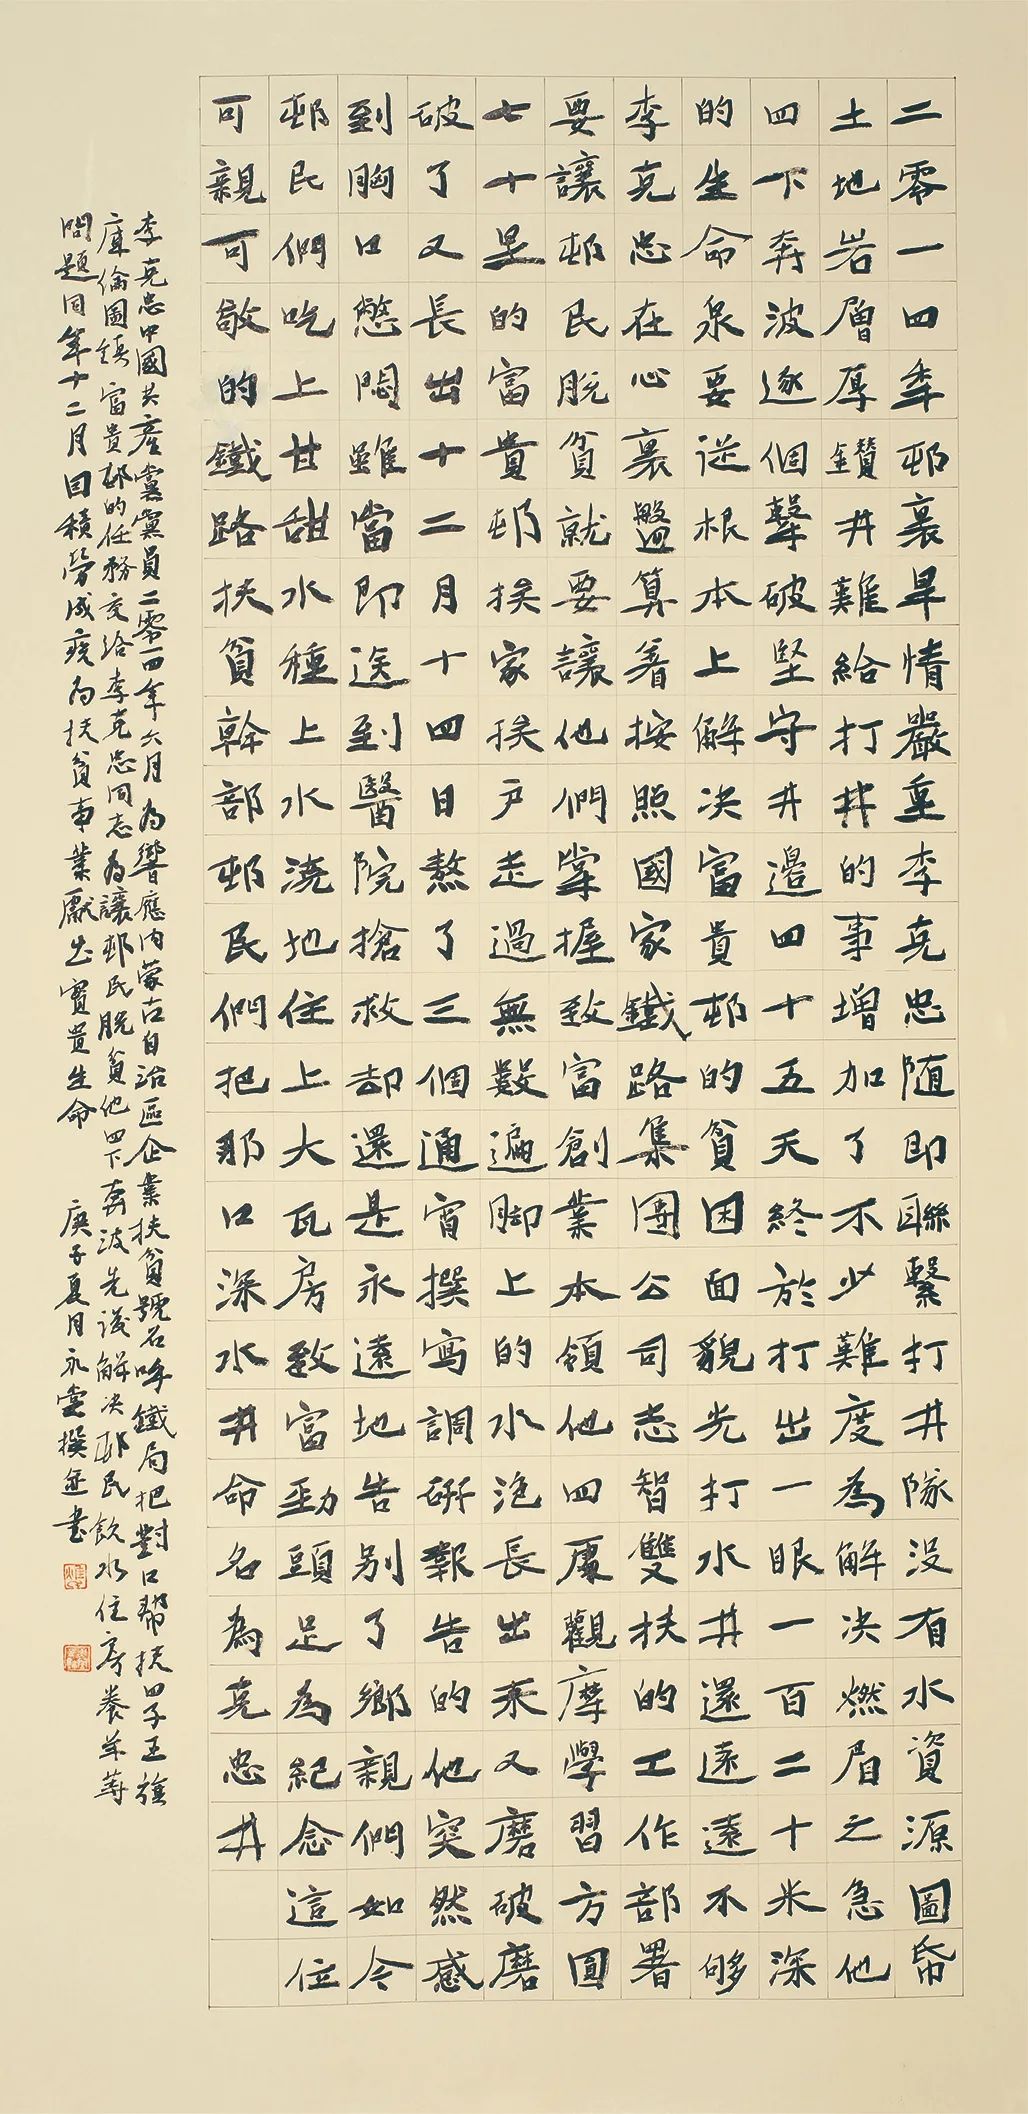 二零一四年邨裏旱情嚴重李克忠随即聯繫打井隊没有水資源圖帋
土地岩層厚鑽井難給打井的事增加了不少難度為解决燃眉之急他
四下奔波逐個擊破堅守井邊四十五天終於打出一眼一百二十米深
的生命泉要從根本上解决富貴邨的貧困面貌光打水井還遠遠不够
李克忠在心裏盤算着按照國家鐵路集團公司志智雙扶的工作部署
要讓邨民脱貧就要讓他們掌握致富創業本領他四處觀摩學習方圓
七十里的富貴邨挨家挨户走過無數遍脚上的水泡長出来又磨破磨
破了又長出十二月十四日熬了三個通宵撰寫調研報告的他突然感
到胸口憋悶雖當即送到醫院搶救却還是永遠地告别了鄉親們如今
邨民們吃上甘甜水種上水澆地住上大瓦房致富勁頭足為紀念這位
可親可敬的鐵路扶貧幹部邨民們把那口深水井命名為克忠井
李克忠中國共産黨黨員二零一四年六月為響應内蒙古自治區企業扶貧號召呼鐵局把對口幫扶四子王旗
庫倫圖鎮富貴邨的任務交给李克忠同志為讓邨民脱貧他四下奔波先後解决邨民飲水住房養羊等
問題同年十二月因積勞成疾為扶貧事業獻出寶貴生命 庚子夏月永雲撰並書